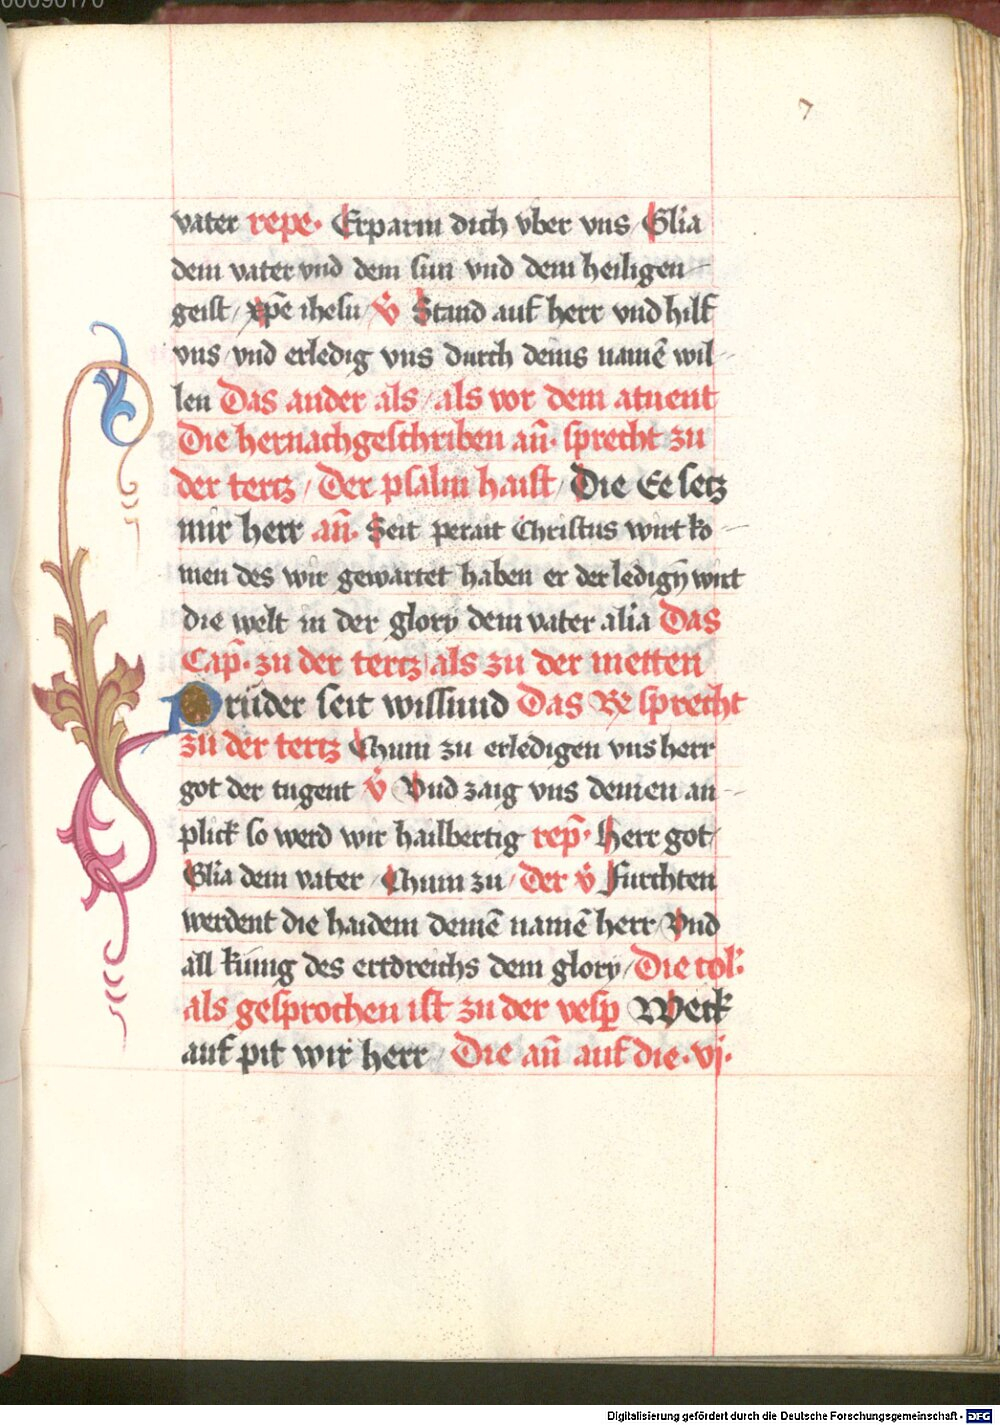 00090170
7
vater repe· Erparm dich vber vns Gl̅ia
dem vater vnd dem sun vnd dem heiligen
geist / xp̅e ihesu / v̊ Stand auf herr vnd hilf
vns / vnd erledig vns durch deins namē wil
len Das ander als / als vor dem atuent
Die hernachgeschriben an̄· sprecht zu
der tertz / Der psalm haist / Die Ee setz
mir herr an̄· Seit perait Christus wirt ko
men des wir gewartet haben er der ledign̄ wirt
die welt in der glory dem vater al̅ia Das
Cap̄· zu der tertz / als zu der metten
Brüder seit wissund Das Re sprecht
zu der tertz Chum zu erledigen vns herr
got der tugent v̊ Vnd zaig vns deinen an
plick so werd wir hailbertig rep̄· Herr got /
Gl̅ia dem vater / Chum zu / Der v̊ Furchten
werdent die haidem deinē namē herr / Vnd
all kunig des ertdreichs dem glory / Die col·
als gesprochen ist zu der vesp̄ Weck
auf pit wir herr / Die an̄ auf die · vj·
Digitalisierung gefördert durch die Deutsche Forschungsgemeinschaft - DFG